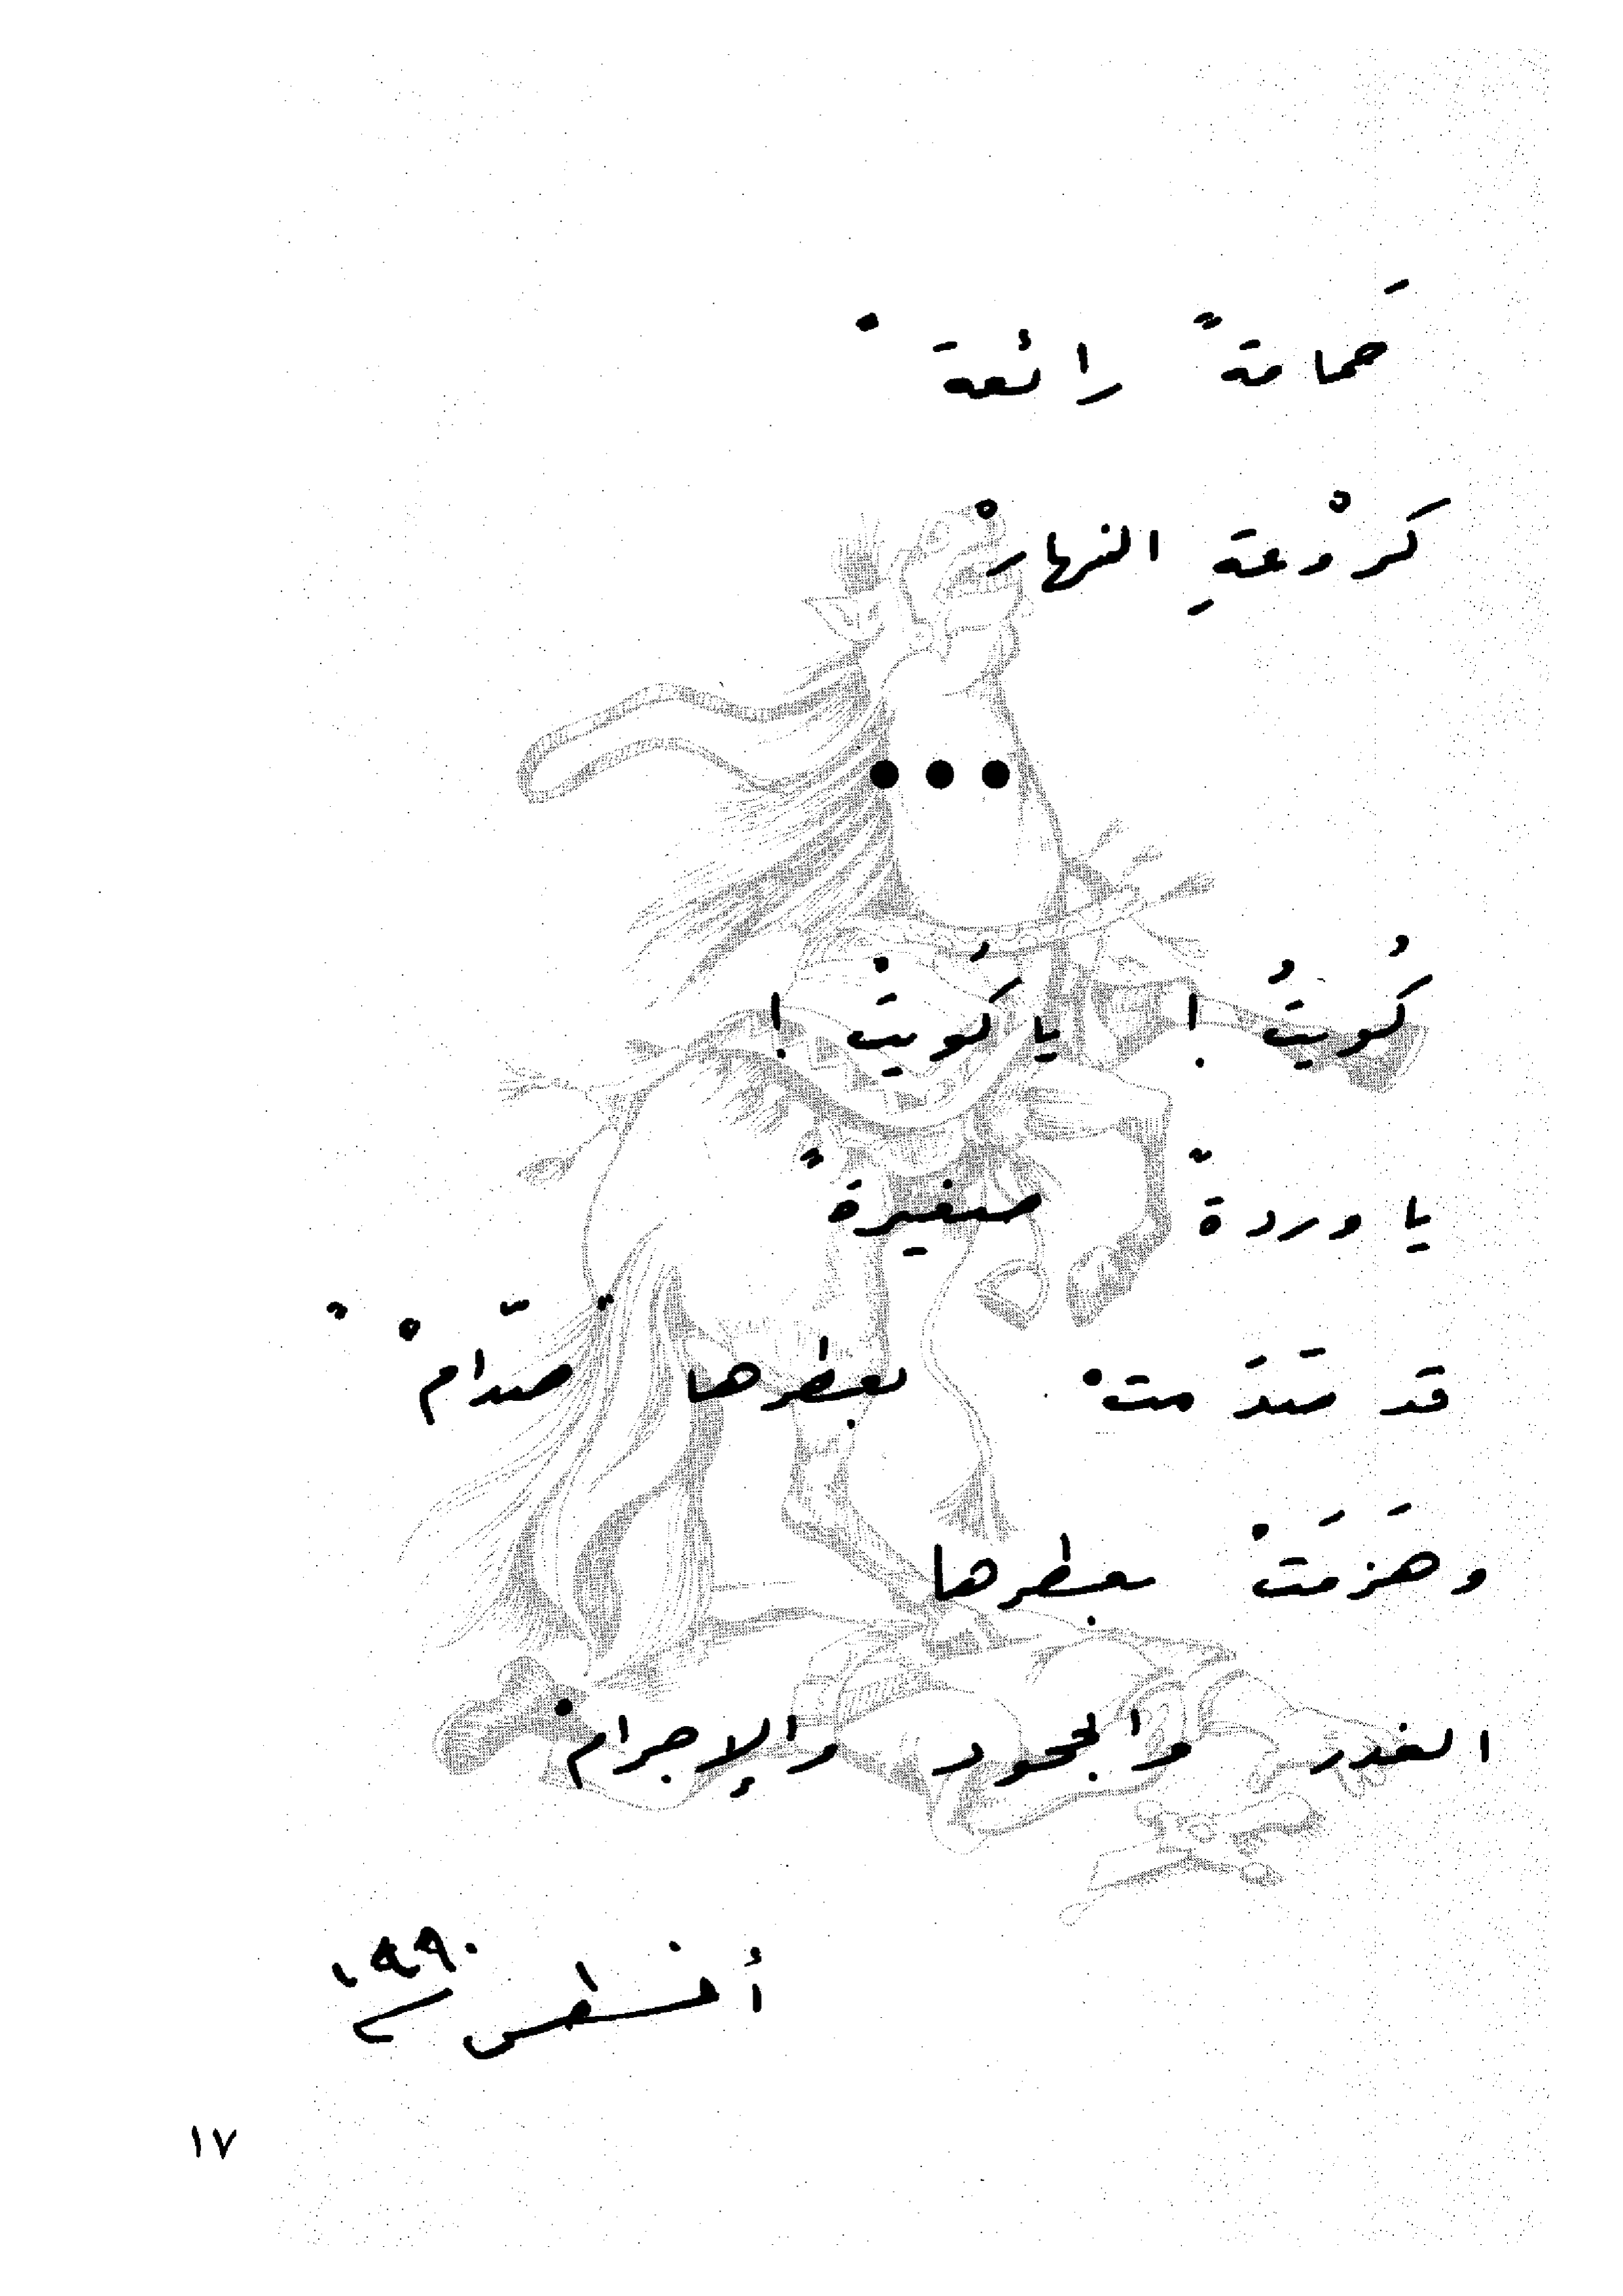 حَمامةً رائعةْ
كرْوعةِ النهارْ
•••
كُويتُ ! يا كُويتْ !
يا وردةً صغيرةً
قد صَدَّمتْ بعطرها صدّامْ
وهَزمَتْ بعطرها
الغدر والجحود والإجرامْ
أغسطس ١٩٩٠
١٧